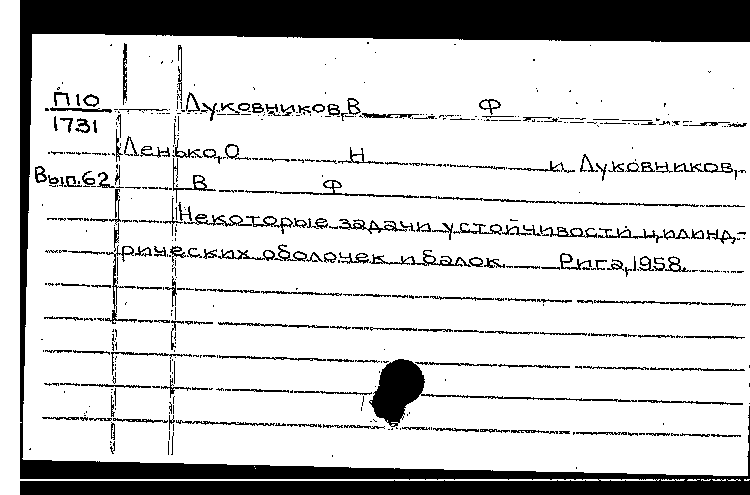 П10 Луковников, В Ф
1731
Ленько, О Н и Луковников,
Вып.62 В Ф
Некоторые задачи устойчивости цилинд-
рических оболочек и балок. Рига, 1958.